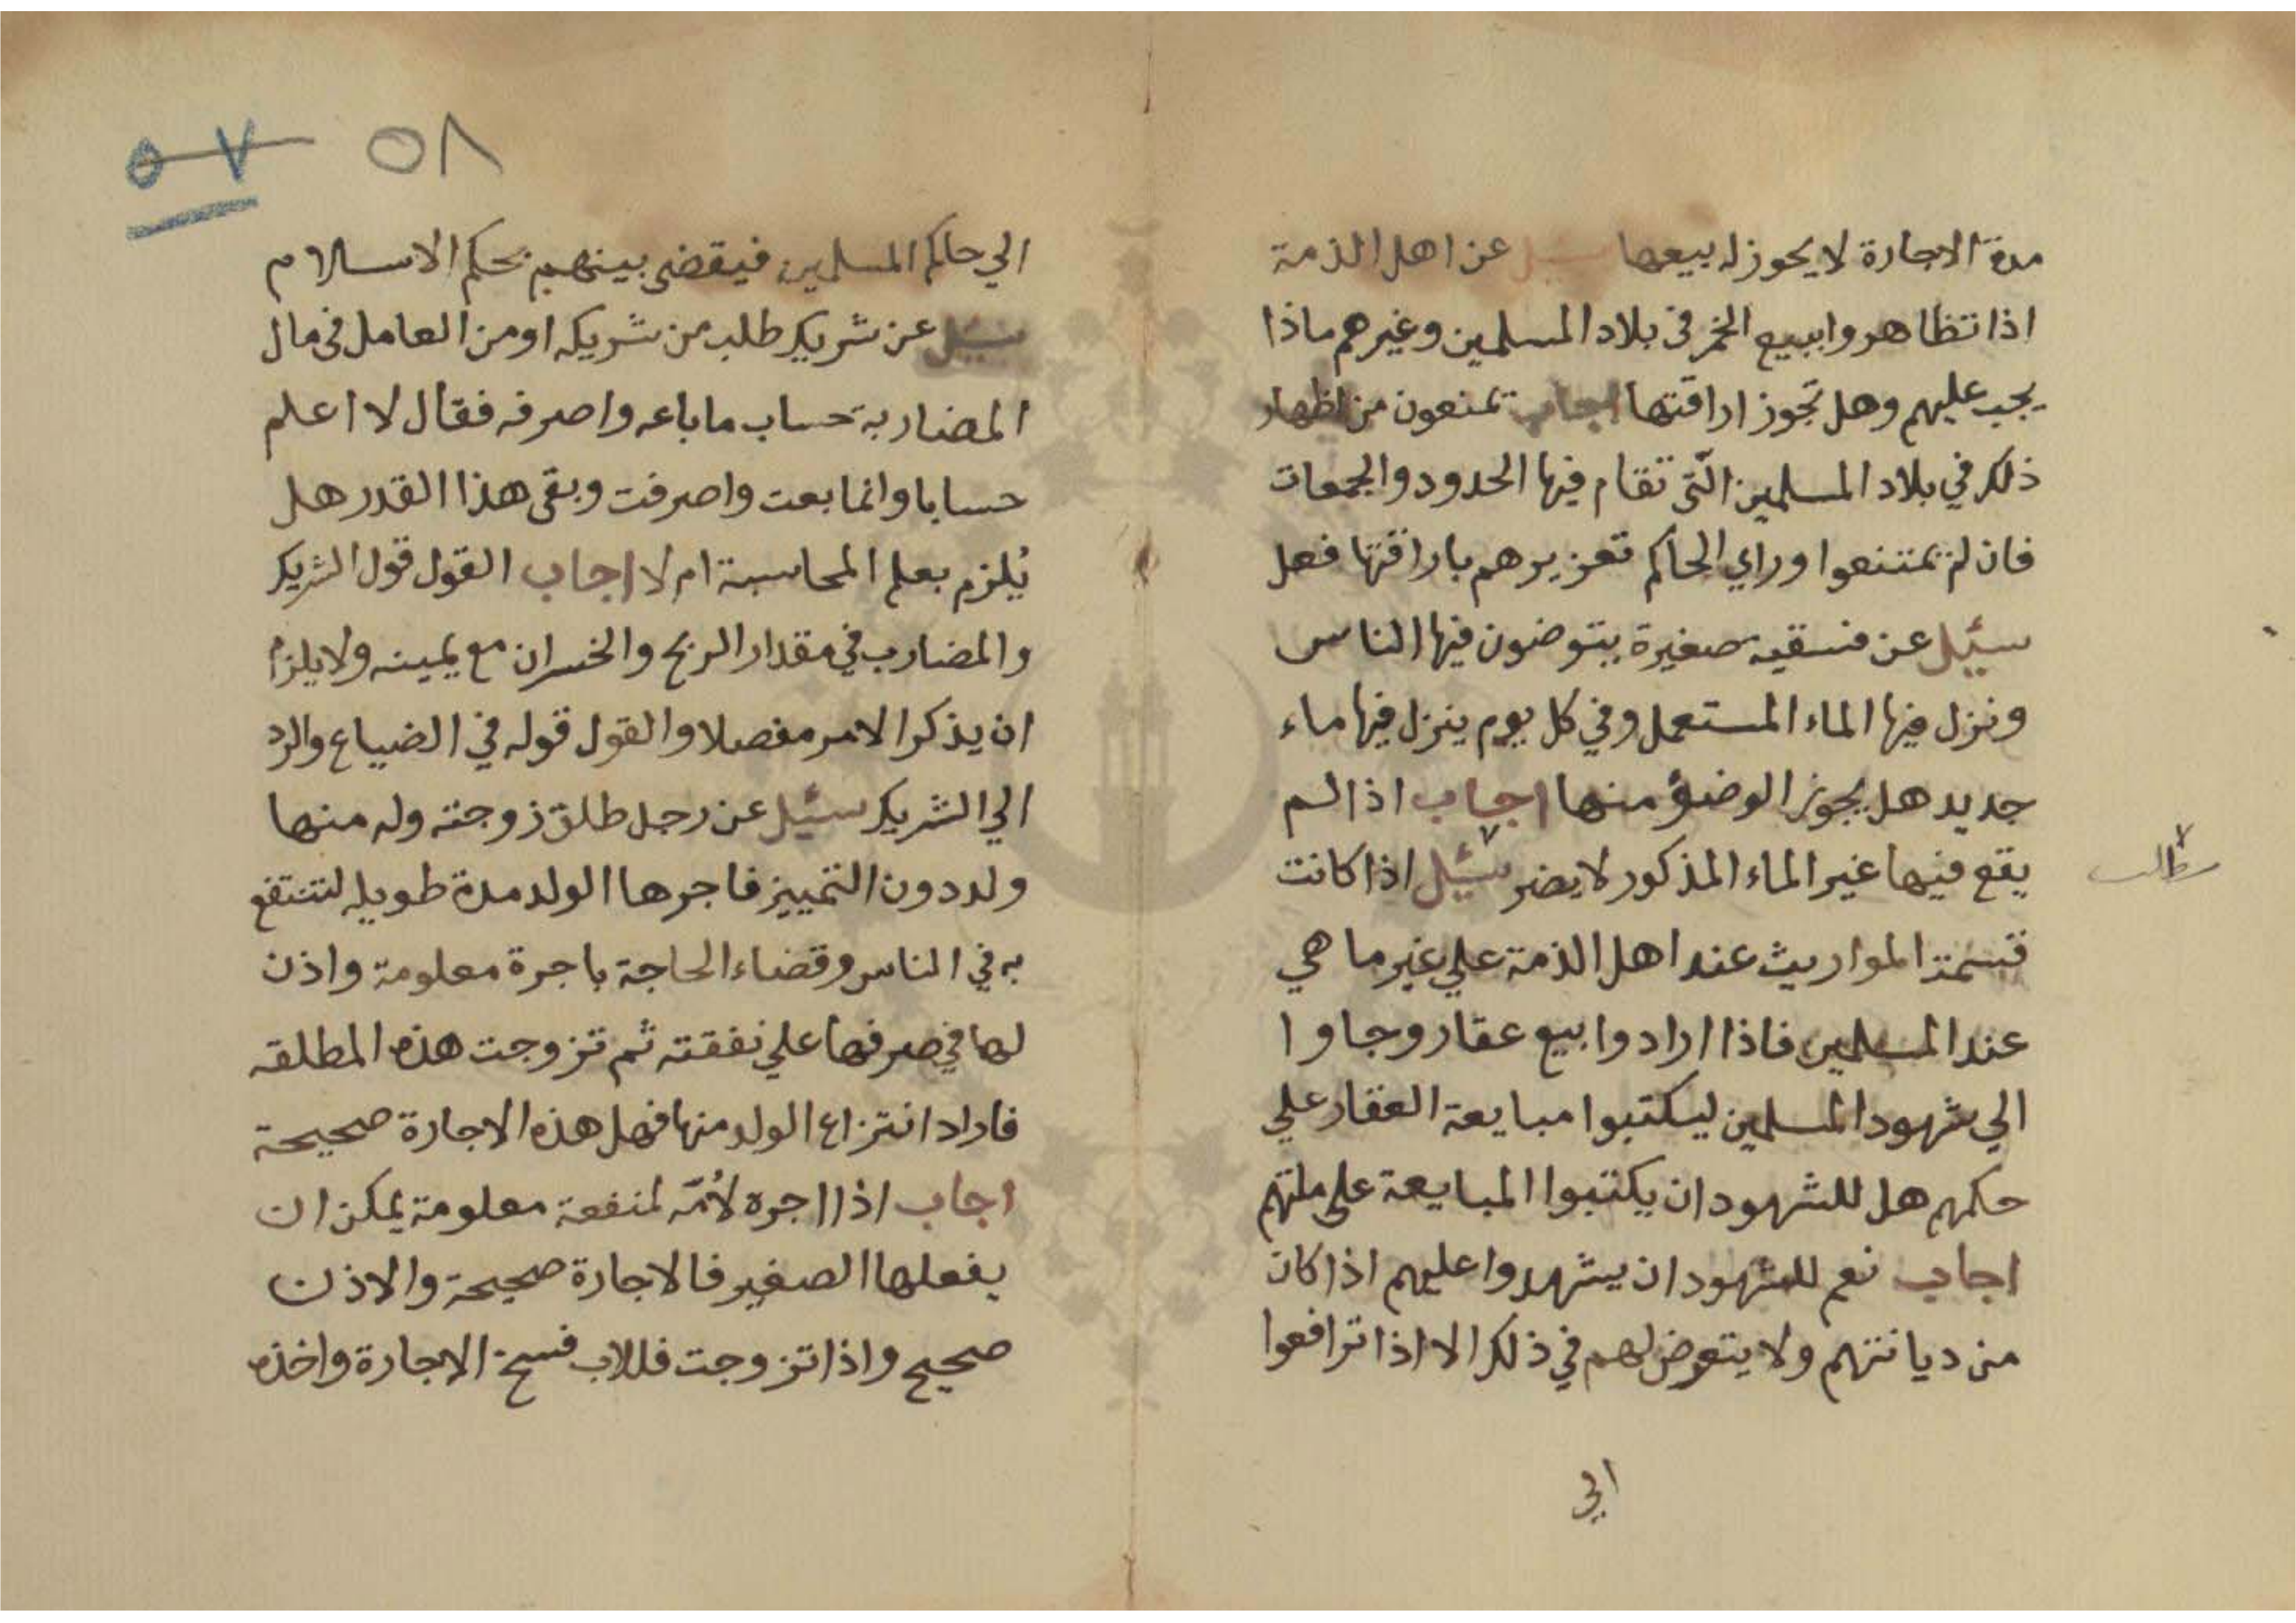 مدة الاجارة لا يجوز له بيعها سئيل عن اهل الذمة
اذا تظاهروا ببيع الخمر في بلاد المسلمين وغيرهم ماذا
يجب عليهم وهل تجوز اراقتها اجاب تمنعون من اظهار
ذلك في بلاد المسلمين الّتي تقام فيها الحدود والجمعات
فان لم تمتنعوا وراي الحاكم تعزيرهم باراقتها فعل
سئيل عن فسقيه صغيرة يتوضون فيها الناس
ونزل فيها الماء المستعمل وفي كل يوم ينزل فيها ماء
جديد هل يجوز الوضؤ منها اجاب اذا لم
يقع فيها غير الماء المذكور لا يضر سئيل اذا كانت
قسمة المواريث عند اهل الذمة علي غير ما هي
عند المسلمين فاذا ارادوا بيع عقار وجاوا
الي شهود المسلمين ليكتبوا مبايعة العقار علي
حكمهم هل للشهود ان يكتبوا المبايعة علي ملتهم
اجاب نعم للشهود ان يشهدوا عليهم اذا كان
من ديانتهم ولا يتعرض لهم في ذلك الا اذا ترافعوا
الي
مطلب
٥٨ ٥٧
الي حاكم المسلمين فيقضي بينهم بحكم الاسلام
سئيل عن شريك طلب من شريكه او من العامل في مال
المضاربة حساب ما باعه واصرفه فقال لا اعلم
حسابا وانما بعت واصرفت وبقي هذا القدر هل
يُلزم بعلم المحاسبة ام لا اجاب القول قول الشريك
والمضارب في مقدار الربح والخسران مع يمينه ولا يلزم
ان يذكر الامر مفصلا والقول قوله في الضياع والرد
الي الشريك سئيل عن رجل طلق زوجته وله منها
ولد دون التمييز فاجرها الولد مدة طويله لتنتفع
به في الناس وقضاء الحاجة باجرة معلومة واذن
لها في صرفها علي نفقته ثم تزوجت هذه المطلقه
فاراد انتزاع الولد منها فهل هذه الاجارة صحيحة
اجاب اذا اجره لأمّه لمنفعة معلومة يمكن ان
يفعلها الصغير فالاجارة صحيحة والاذن
صحيح واذا تزوجت فللاب فسخ الاجارة واخذه